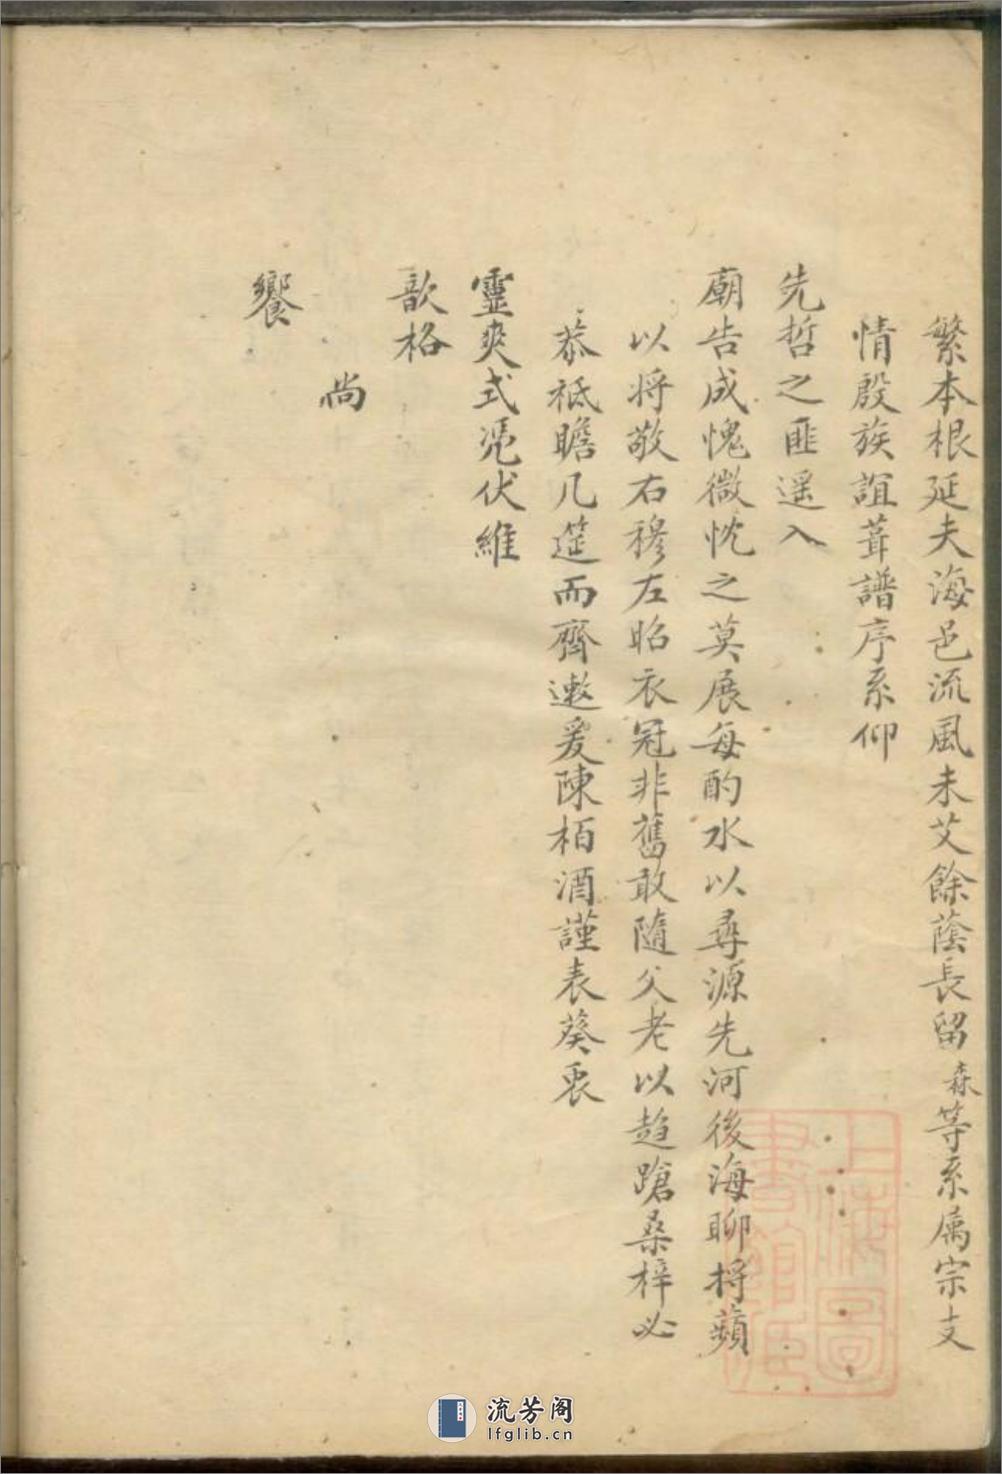 繁本根延夫海邑流風未艾餘蔭長留森等系属宗支
情殷族誼葺譜序系仰
先哲之匪遥入
廟告成愧微忱之莫展每酌水以尋源先河後海聊捋蘋
以将敬右穆左昭衣冠非舊敢隨父老以趋蹌桑梓必
恭祗瞻几筵而齊遬爰陳栢酒謹表葵衷
靈爽式凭伏維
歆格
尚
饗
上海圖
書館藏
流芳阁
lfglib.cn